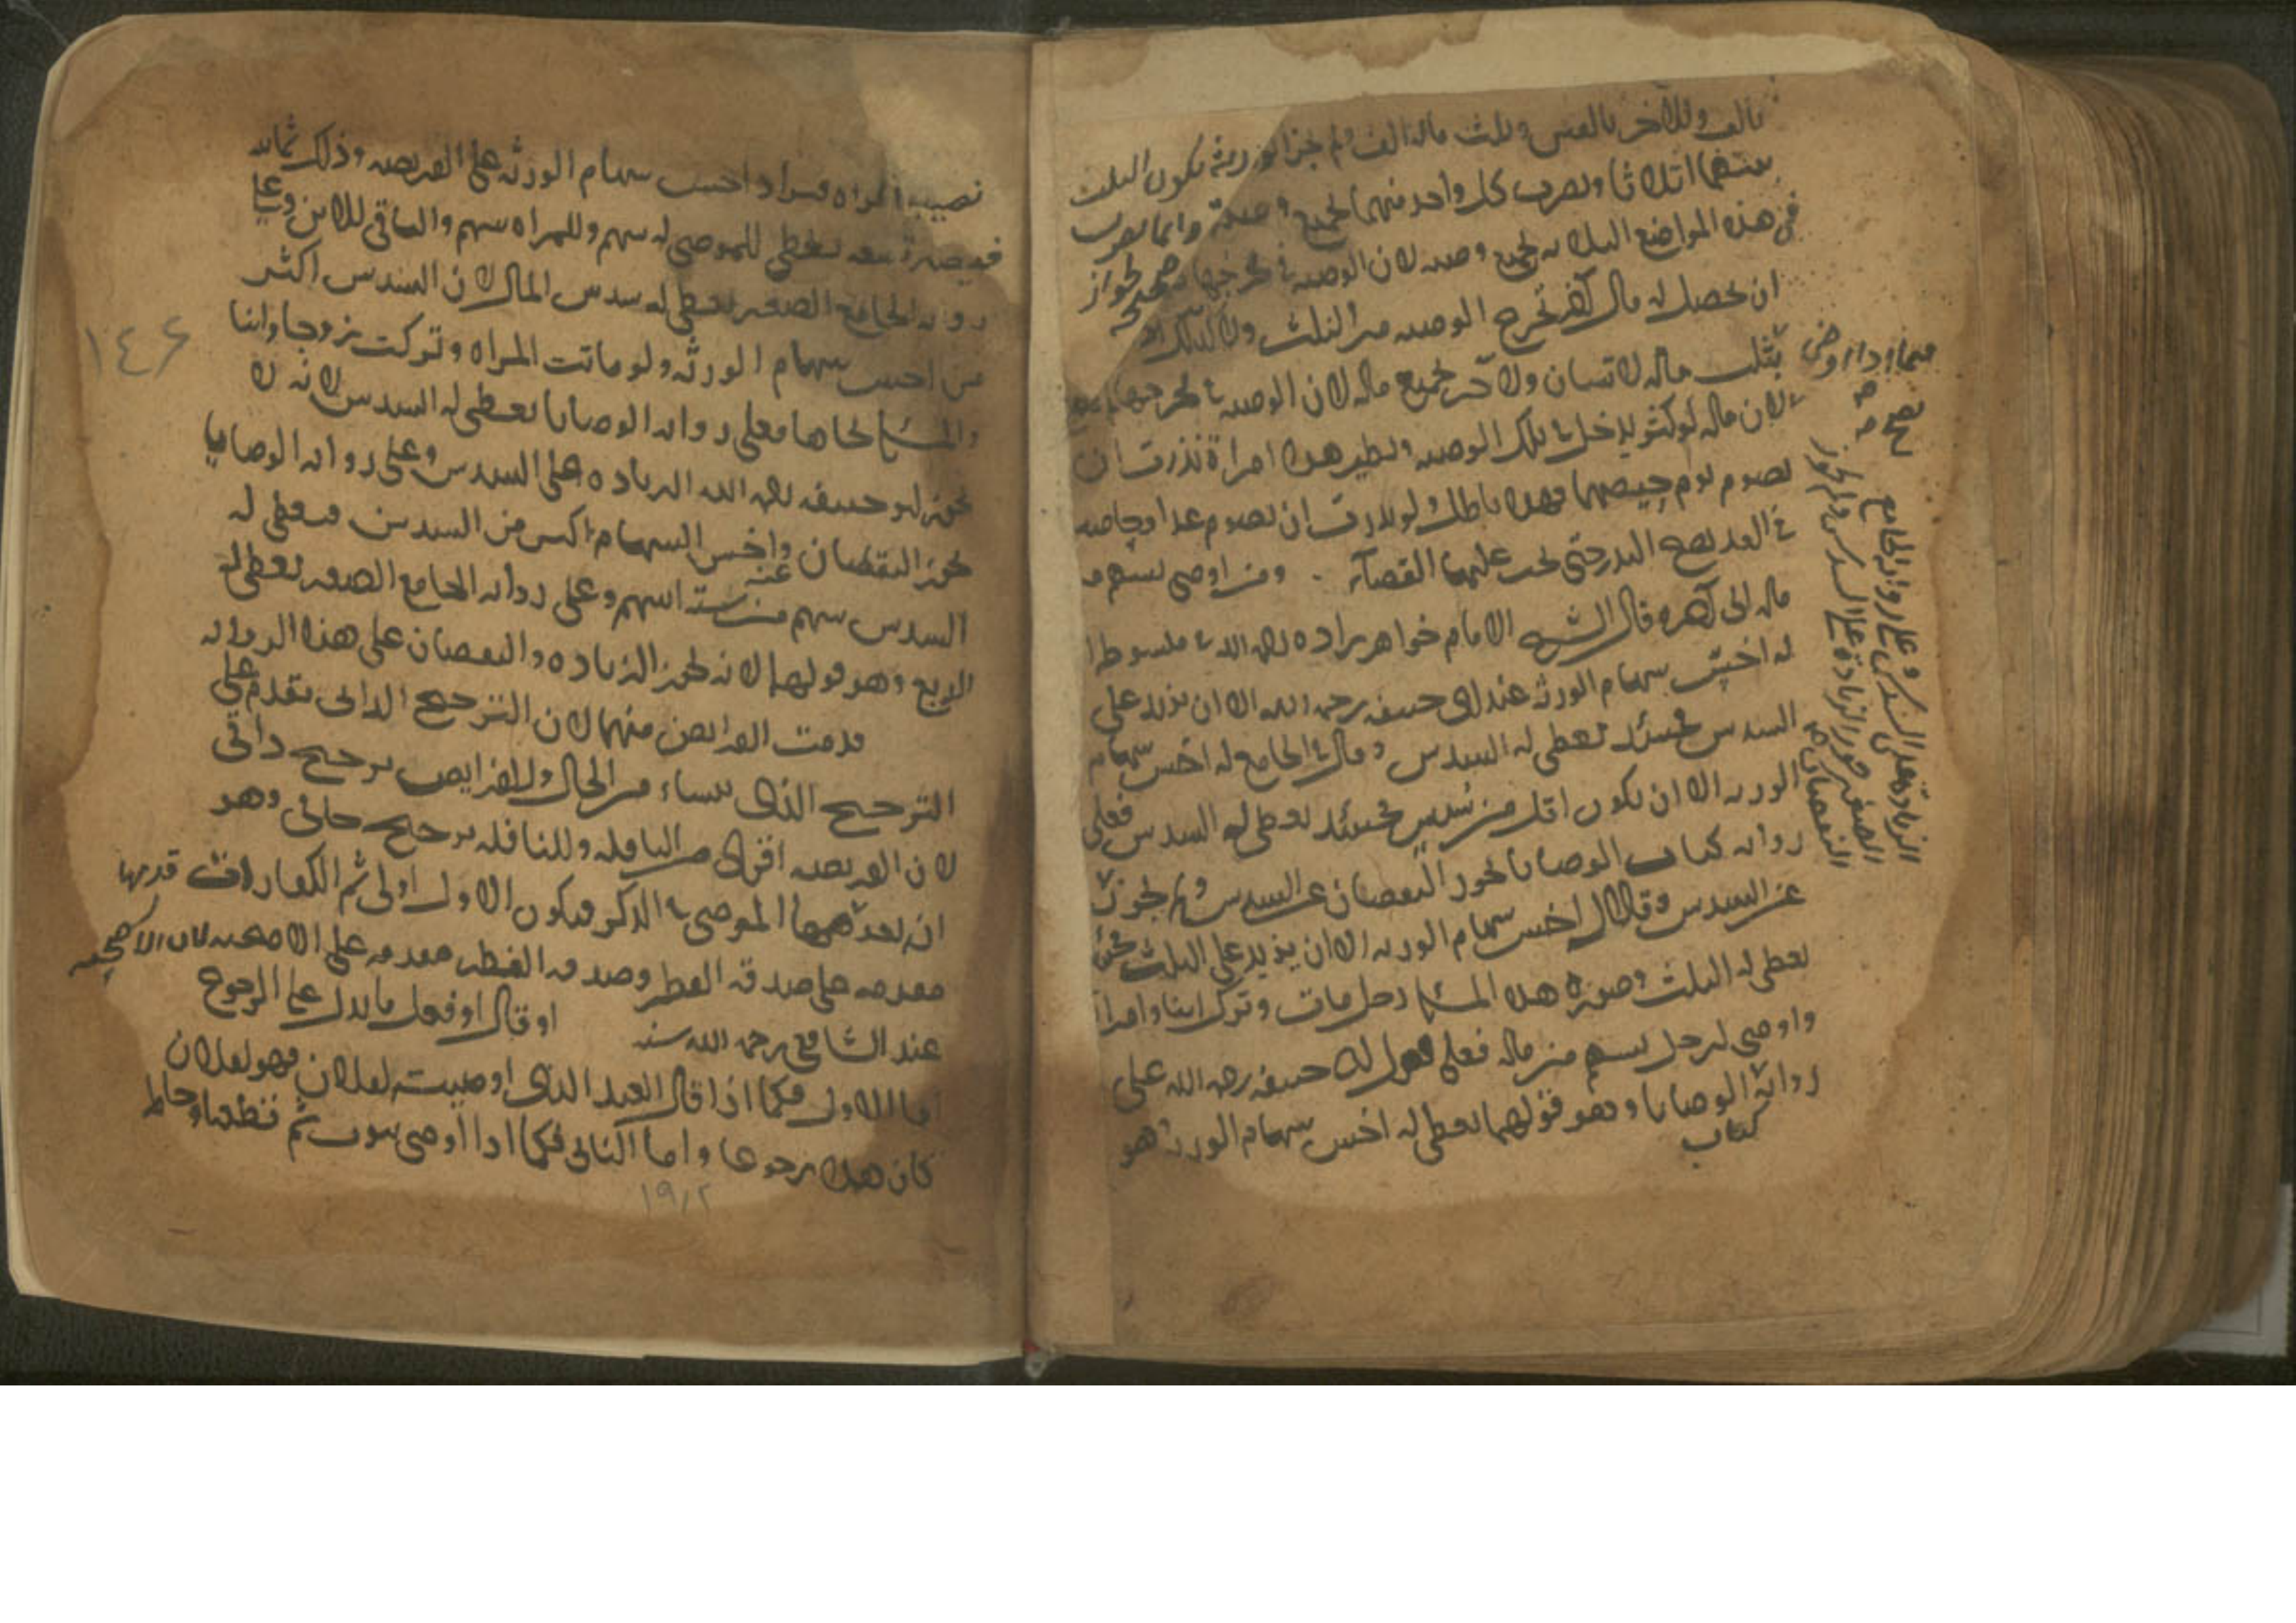 بالف وللآخر بالفين وثلث ماله الف ولم يجز الورثة يكون الثلث
بينهما اثلاثا ويضرب كل واحد منهما بجميع وصيته وانما يضرب
في هذه المواضع الثلاثه بجميع وصيه لان الوصيه في مخرجها صحيحه لجواز
ان يحصل له مال آخر تخرج الوصيه من الثلث ولا كذلك
فيما اذا اوصى بثلث ماله لانسان ولآخر بجميع ماله لان الوصيه في مخرجها
لان ماله لو كثر يدخل في تلك الوصيه ونظير هذا امراة نذرت ان
تصوم يوم حيضها فهذا باطل ولو نذرت ان تصوم غدا وحاضت
في الغد يصح النذر حتى يجب عليها القضآء . ومن اوصى بسهم من
ماله الى آخره قال الشيخ الامام خواهر زاده رحمه الله في مبسوطه
له اخس سهام الورثه عند ابي حنيفه رحمه الله الا ان يزيد على
السدس فحينئذ يعطى له السدس وقال في الجامع له اخس سهام
الورثه الا ان يكون اقل من سدس فحينئذ يعطى له السدس فعلى
روايه كتاب الوصايا يجوز النقصان عن السدس ولم يجوز
عن السدس وقالا له اخس سهام الورثه الا ان يزيد على الثلث فحينئذ
يعطى له الثلث وصورة هذه المسئله رجل مات وترك ابنا وامراة
واوصى لرجل بسهم من ماله فعلى قول ابي حنيفه رحمه الله على
رواية الوصايا وهو قولهما يعطى له اخس سهام الورثه وهو
كتاب
صح
الزيادة على السدس وعلى روايه الجامع
الصغير جوز الزيادة على السدس ولم يجوز
النقصان
نصيب المراه فيزاد اخس سهام الورثه على الفريضه وذلك ثمانيه
فيصير تسعه يعطى للموصى له سهم وللمراه سهم والباقي للابن وعلى
روايه الجامع الصغير يعطى له سدس المال لان السدس اكثر
من اخس سهام الورثه ولو ماتت المراه وتركت زوجا وابنا
والمسئله بحالها فعلى روايه الوصايا يعطى له السدس لانه لا
يجوز ابو حنيفه رحمه الله الزياده على السدس وعلى روايه الوصايا
يجوز النقصان عنه واخس السهام اكثر من السدس فيعطى له
السدس سهم من ستة اسهم وعلى روايه الجامع الصغير يعطى له
الربع وهو قولهما لانه يجوز الزياده والنقصان على هذا الروايه
قدمت الفرايض منها لان الترجيح الذاتي تقدم على
الترجيح الذي ينشاء من الحال وللفرايض ترجيح ذاتي
لان الفريضه اقوى من النافله وللنافله ترجيح حالي وهو
ان بعدهما الموصي في الذكر فيكون الاول اولى ثم الكفارات قدمها
مقدمه على صدقه الفطر وصدقه الفطر مقدمه على الاضحيه لان الاضحيه
عند الشافعي رحمه الله سنه او قال او فعل ما يدل على الرجوع
اما الاول فكما اذا قال العبد الذي اوصيت لفلان فهو لفلان
كان هذا رجوعا واما الثاني فكما اذا اوصى بثوب ثم قطعه وخاطه
١٤٦
١٩/٢